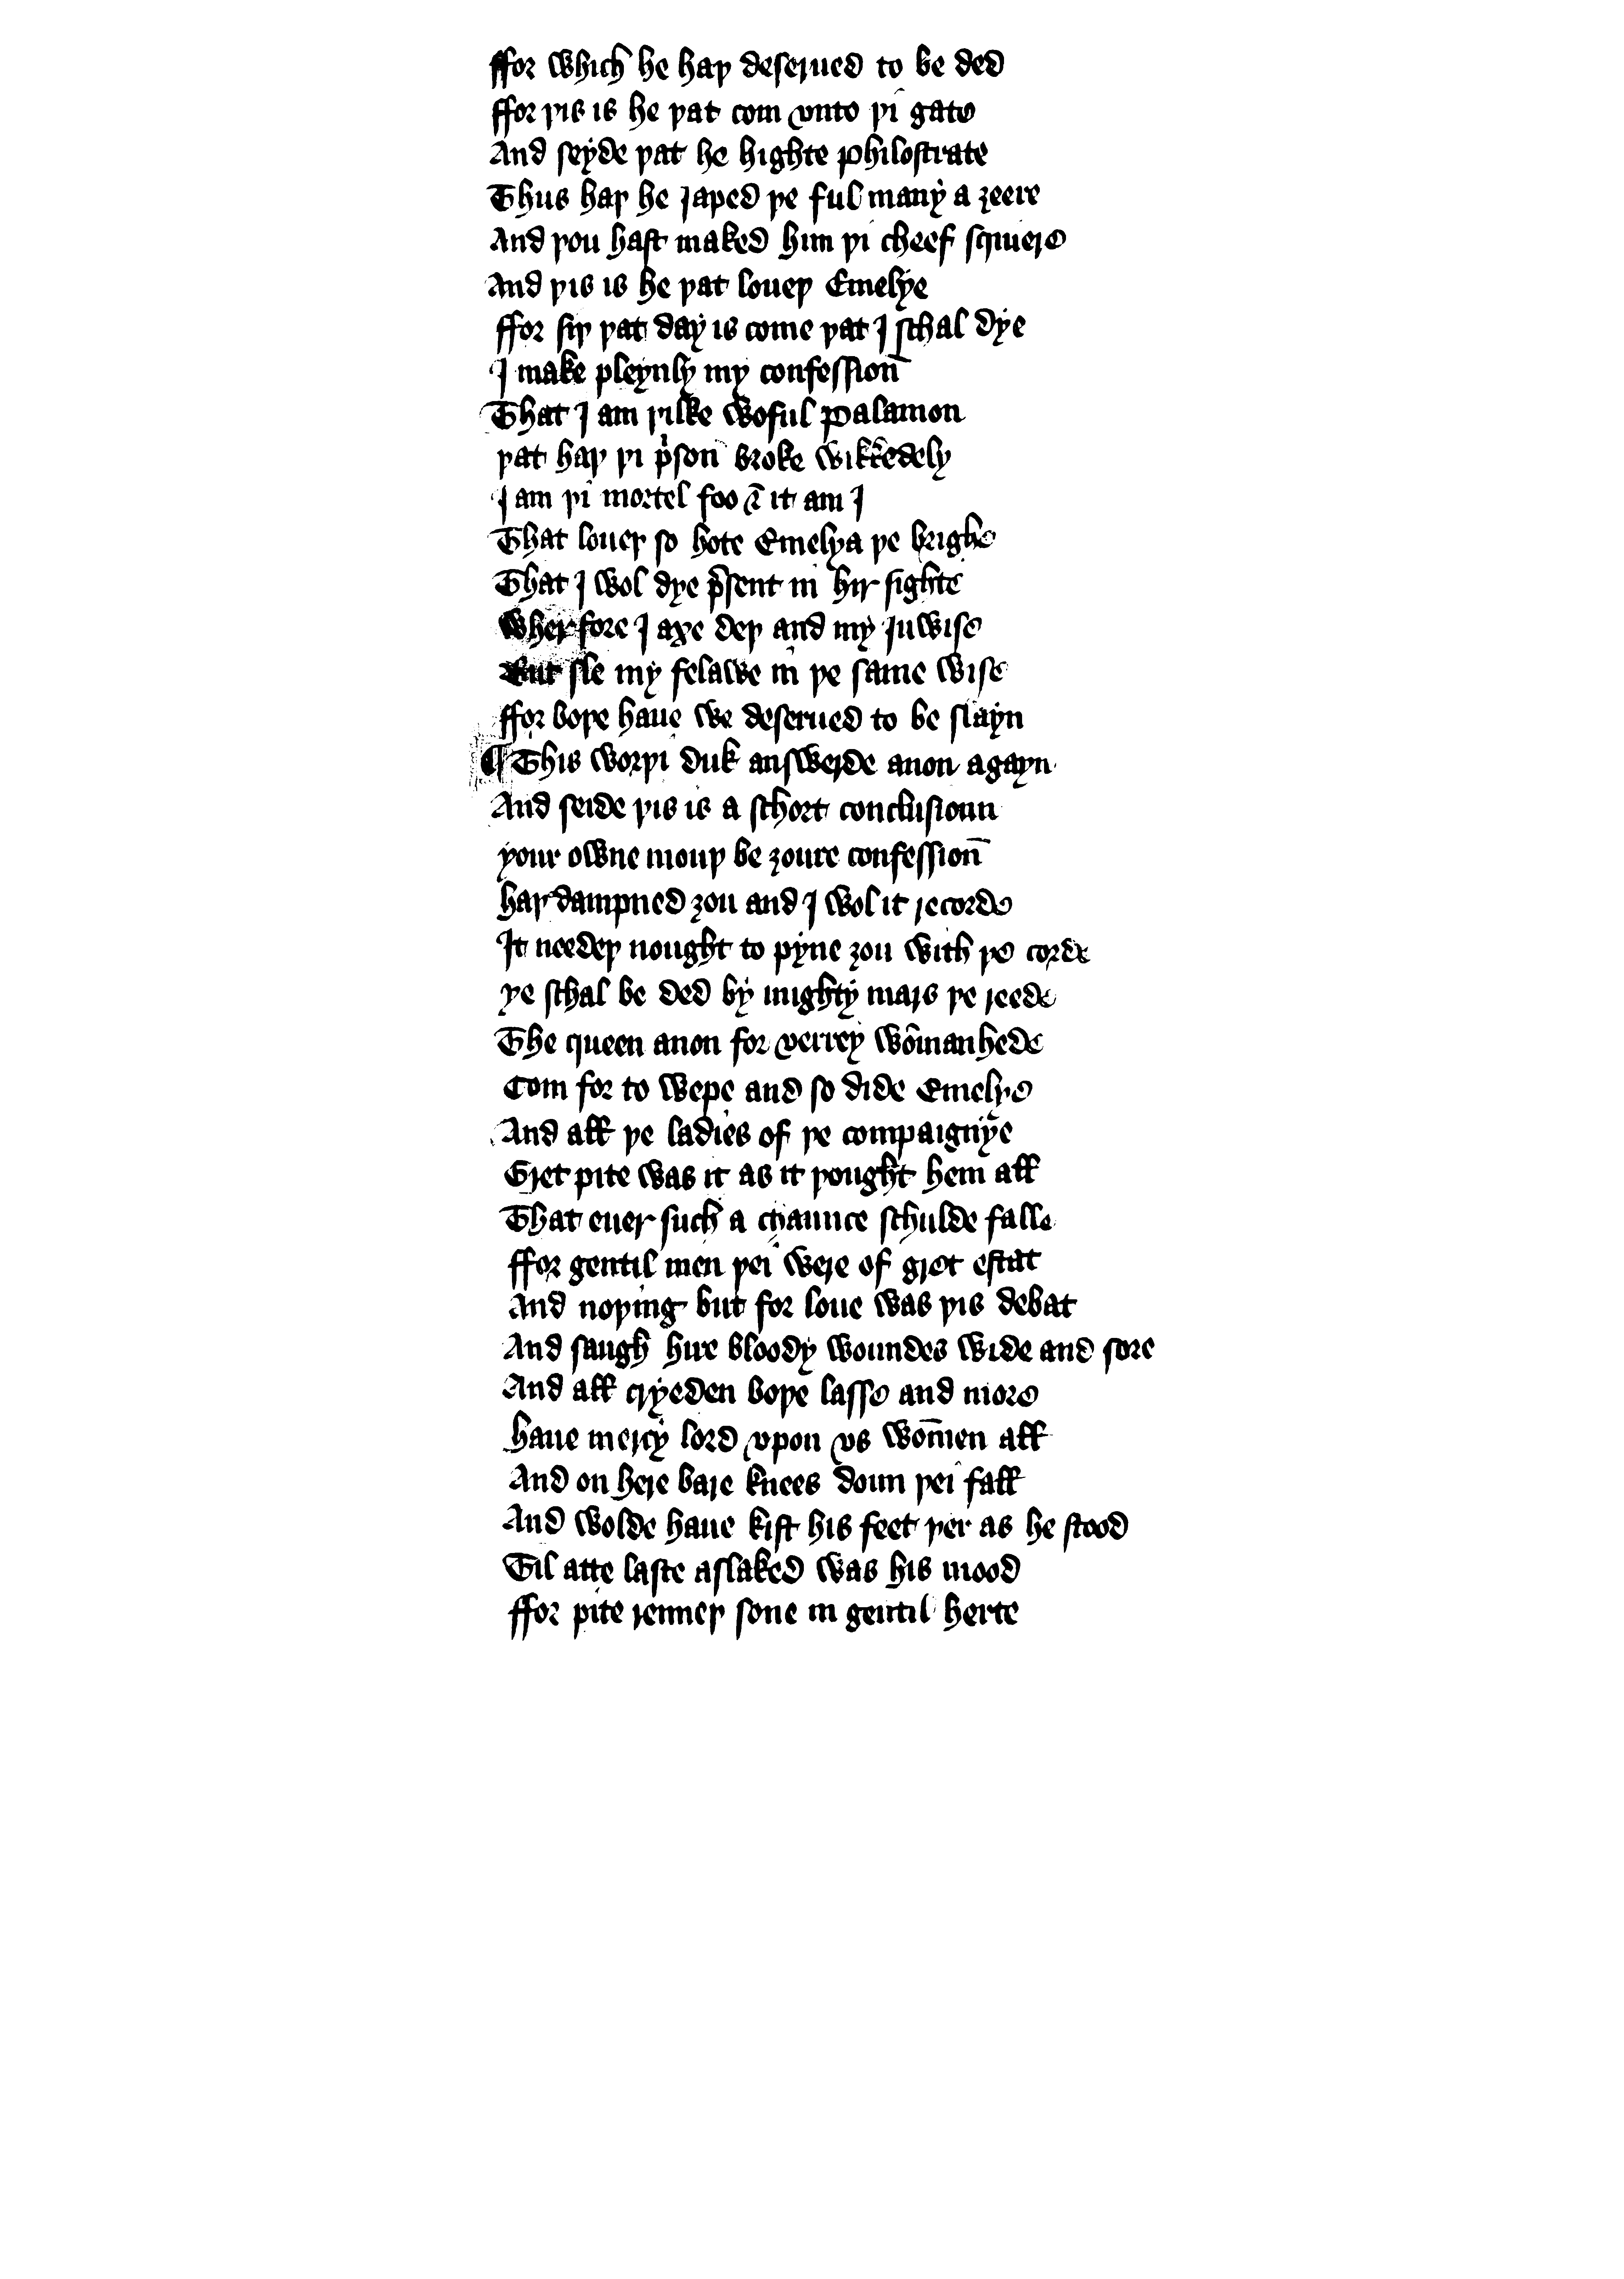 ffor which he haþ deserued to be ded
ffor þis is he þat com vnto þi gate
And seyde þat he highte philostrate
Thus haþ he japed þe ful many a ȝeere
And þou hast maked him þi cheef squiere
And þis is he þat loueþ Emelye
ffor siþ þat day is come þat I schal dye
I make pleynly my confession̄
That I am þilke woful palamon
þat haþ þi p̓son broke wikkedely
I am þi mortel foo & it am I
That loueþ so hote Emelya þe brighte
That I wol dye p̄sent in hir sighte
Wherfore I axe deþ and my juwise
But sle my felawe in þe same wise
ffor boþe haue we deserued to be slayn
¶ This worþi duk answerde anon agayn
And seide þis is a schort conclusioun
your owne mouþ be ȝoure confession̄
haþ dampned ȝou and I wol it recorde
It needeþ nought to pyne ȝou with þe corde
ye schal be ded by mighty mars þe reede
The queen anon for verrey wōmanhede
Com for to wepe and so dide Emelye
And all þe ladies of þe compaignye
Gret pite was it as it þought hem all
That euer such a chaunce schulde falle
ffor gentil men þei were of gret estat
And noþing but for loue was þis debat
And saugh hire bloody woundes wide and sore
And all cryeden boþe lasse and more
haue mercy lord vpon vs wom̄en all
And on here bare knees doun þei fall
And wolde haue kist his feet þer as he stood
Til atte laste aslaked was his mood
ffor pite renneþ sone in gentil herte